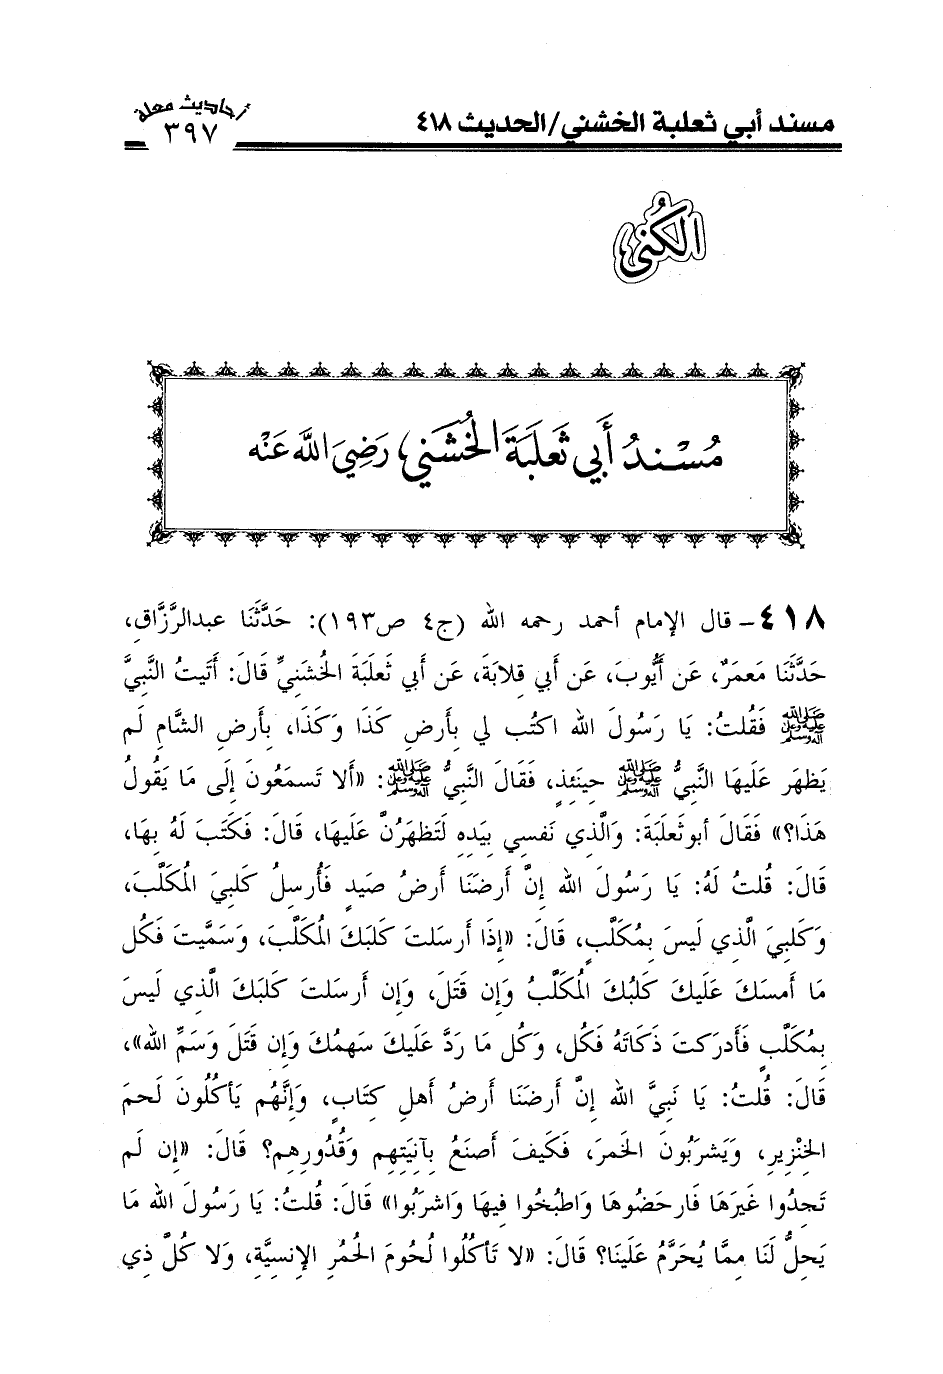 مسند أبي ثعلبة الخشني/الحديث ٤١٨
أحاديث معلة
٣٩٧
الكنى
مُسْنَدُ أَبِي ثَعلَبَةَ الخُشَنِيِّ رَضِيَ اللَّه عَنْه
٤١٨- قال الإمام أحمد رحمه الله (ج٤ ص١٩٣): حَدَّثَنَا عبدالرَّزَّاقِ،
حَدَّثَنَا مَعمَرٌ، عَن أَيُّوبَ، عَن أَبِي قِلابَةَ، عَن أَبِي ثَعلَبَةَ الخُشَنِيِّ قَالَ: أَتَيتُ النَّبِيَّ
ﷺ فَقُلتُ: يَا رَسُولَ الله اكتُب لِي بِأَرضِ كَذَا وَكَذَا، بِأَرضِ الشَّامِ لَم
يَظهَر عَلَيهَا النَّبِيُّ ﷺ حِينَئِذٍ، فَقَالَ النَّبِيُّ ﷺ: «أَلا تَسمَعُونَ إِلَى مَا يَقُولُ
هَذَا؟» فَقَالَ أبوثَعلَبَةَ: وَالَّذِي نَفسِي بِيَدِهِ لَتَظهَرُنَّ عَلَيهَا، قَالَ: فَكَتَبَ لَهُ بِهَا،
قَالَ: قُلتُ لَهُ: يَا رَسُولَ الله إِنَّ أَرضَنَا أَرضُ صَيدٍ فَأُرسِلُ كَلبِيَ المُكَلَّبَ،
وَكَلبِيَ الَّذِي لَيسَ بِمُكَلَّبٍ، قَالَ: «إِذَا أَرسَلتَ كَلبَكَ المُكَلَّبَ، وَسَمَّيتَ فَكُل
مَا أَمسَكَ عَلَيكَ كَلبُكَ المُكَلَّبُ وَإِن قَتَلَ، وَإِن أَرسَلتَ كَلبَكَ الَّذِي لَيسَ
بِمُكَلَّبٍ فَأَدرَكتَ ذَكَاتَهُ فَكُل، وَكُل مَا رَدَّ عَلَيكَ سَهمُكَ وَإِن قَتَلَ وَسَمِّ الله»،
قَالَ: قُلتُ: يَا نَبِيَّ الله إِنَّ أَرضَنَا أَرضُ أَهلِ كِتَابٍ، وَإِنَّهُم يَأكُلُونَ لَحمَ
الخِنْزِيرِ، وَيَشرَبُونَ الخَمرَ، فَكَيفَ أَصنَعُ بِآنِيَتِهِم وَقُدُورِهِم؟ قَالَ: «إِن لَم
تَجِدُوا غَيرَهَا فَارحَضُوهَا وَاطبُخُوا فِيهَا وَاشرَبُوا» قَالَ: قُلتُ: يَا رَسُولَ الله مَا
يَحِلُّ لَنَا مِمَّا يُحَرَّمُ عَلَينَا؟ قَالَ: «لا تَأكُلُوا لُحُومَ الحُمُرِ الإِنسِيَّةِ، وَلا كُلَّ ذِي